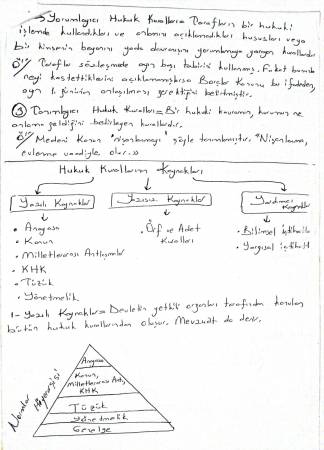 → Yorumlayıcı Hukuk Kuralları= Tarafların bir hukuki
işlemde kullandıkları ve anlamını açıklamadıkları hususları veya
bir kimsenin beyanını yada davranışını yorumlamaya yarayan kurallardır.
Ör/ Taraflar sözleşmede ayın başı tabirini kullanmış. Fakat bununla
neyi kastettiklerini açıklamamışlarsa Borçlar Kanunu bu ifadeden,
ayın 1. gününün anlaşılması gerektiğini belirtmiştir.
③ Tanımlayıcı Hukuk Kuralları= Bir hukuki kavramın, kurumun ne
anlama geldiğini belirleyen kurallardır.
Ör/ Medeni Kanun "nişanlanmayı" şöyle tanımlamıştır. "Nişanlanma,
evlenme vaadiyle olur.»
Hukuk Kurallarının Kaynakları
Yazılı Kaynaklar
Yazısız Kaynaklar
Yardımcı Kaynaklar
• Anayasa
• Kanun
• Milletlerarası Antlaşmalar
• KHK
• Tüzük
• Yönetmelik
• Örf ve Adet
Kuralları
• Bilimsel İçtihatlar
• Yargısal İçtihat
1- Yazılı Kaynaklar= Devletin yetkili organları tarafından konulan
bütün hukuk kurallarından oluşur. Mevzuat da denir.
Normlar Hiyerarşisi
Anayasa
Kanun,
Milletlerarası Ant.,
KHK
Tüzük
Yönetmelik
Genelge